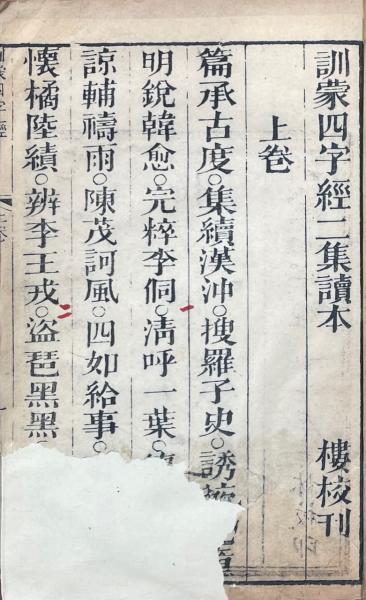 訓蒙四字經二集讀本 樓校刊
上卷
篇承古度○集續漢沖○搜羅子史○誘
明銳韓愈○完粹李侗○清呼一葉○
諒輔禱雨○陳茂訶風○四如給事○
懷橘陸績○辨李王戎○盜琶黑黑